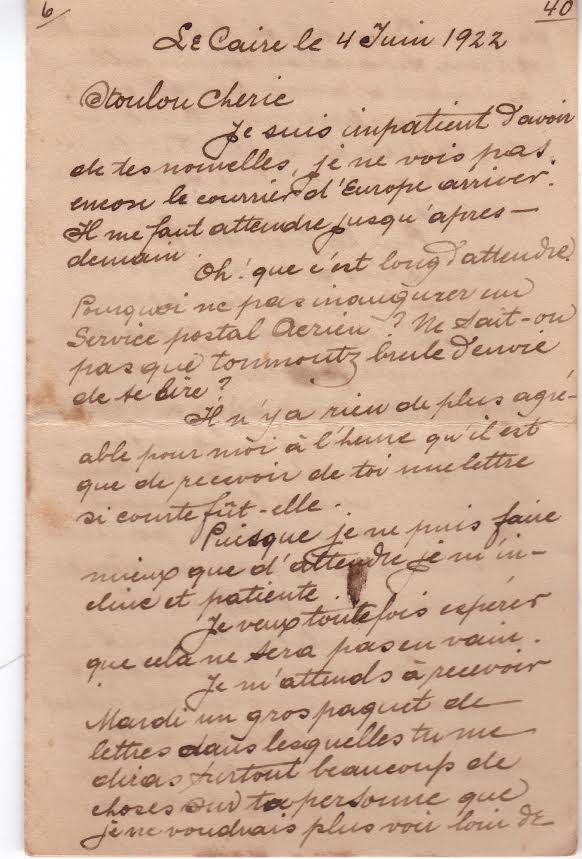 6/ 40
Le Caire le 4 Juin 1922
Stoulou Cherie
Je suis impatient d'avoir
de tes nouvelles, je ne vois pas
encore le courrier d'Europe arriver.
Il me faut attendre jusqu'apres-
demain.
Oh! que c'est long d'attendre.
Pourquoi ne pas inaugurer un
Service postal Aerien? Ne Sait-on
pas que tonmoutz brule d'envie
de te lire?
Il n'y a rien de plus agré-
able pour moi à l'heure qu'il est
que de recevoir de toi une lettre
si courte fût-elle.
Puisque je ne puis faire
mieux que d'attendre je m'in-
cline et patiente.
Je veux toutefois espérer
que cela ne sera pas en vain.
Je m'attends à recevoir
Mardi un gros paquet de
lettres dans lesquelles tu me
diras surtout beaucoup de
choses sur ta personne que
je ne voudrais plus voir loin de